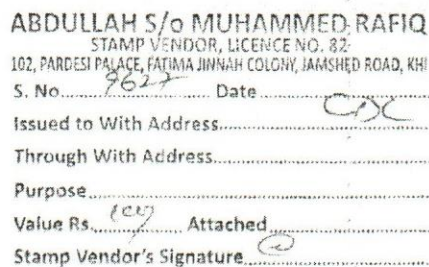 ABDULLAH S/o MUHAMMED RAFIQ
STAMP VENDOR, LICENCE NO. 82
102, PARDESI PALACE, FATIMA JINNAH COLONY, JAMSHED ROAD, KHI
S. No. 9627 Date
Issued to With Address
Through With Address
Purpose
Value Rs. Attached
Stamp Vendor's Signature